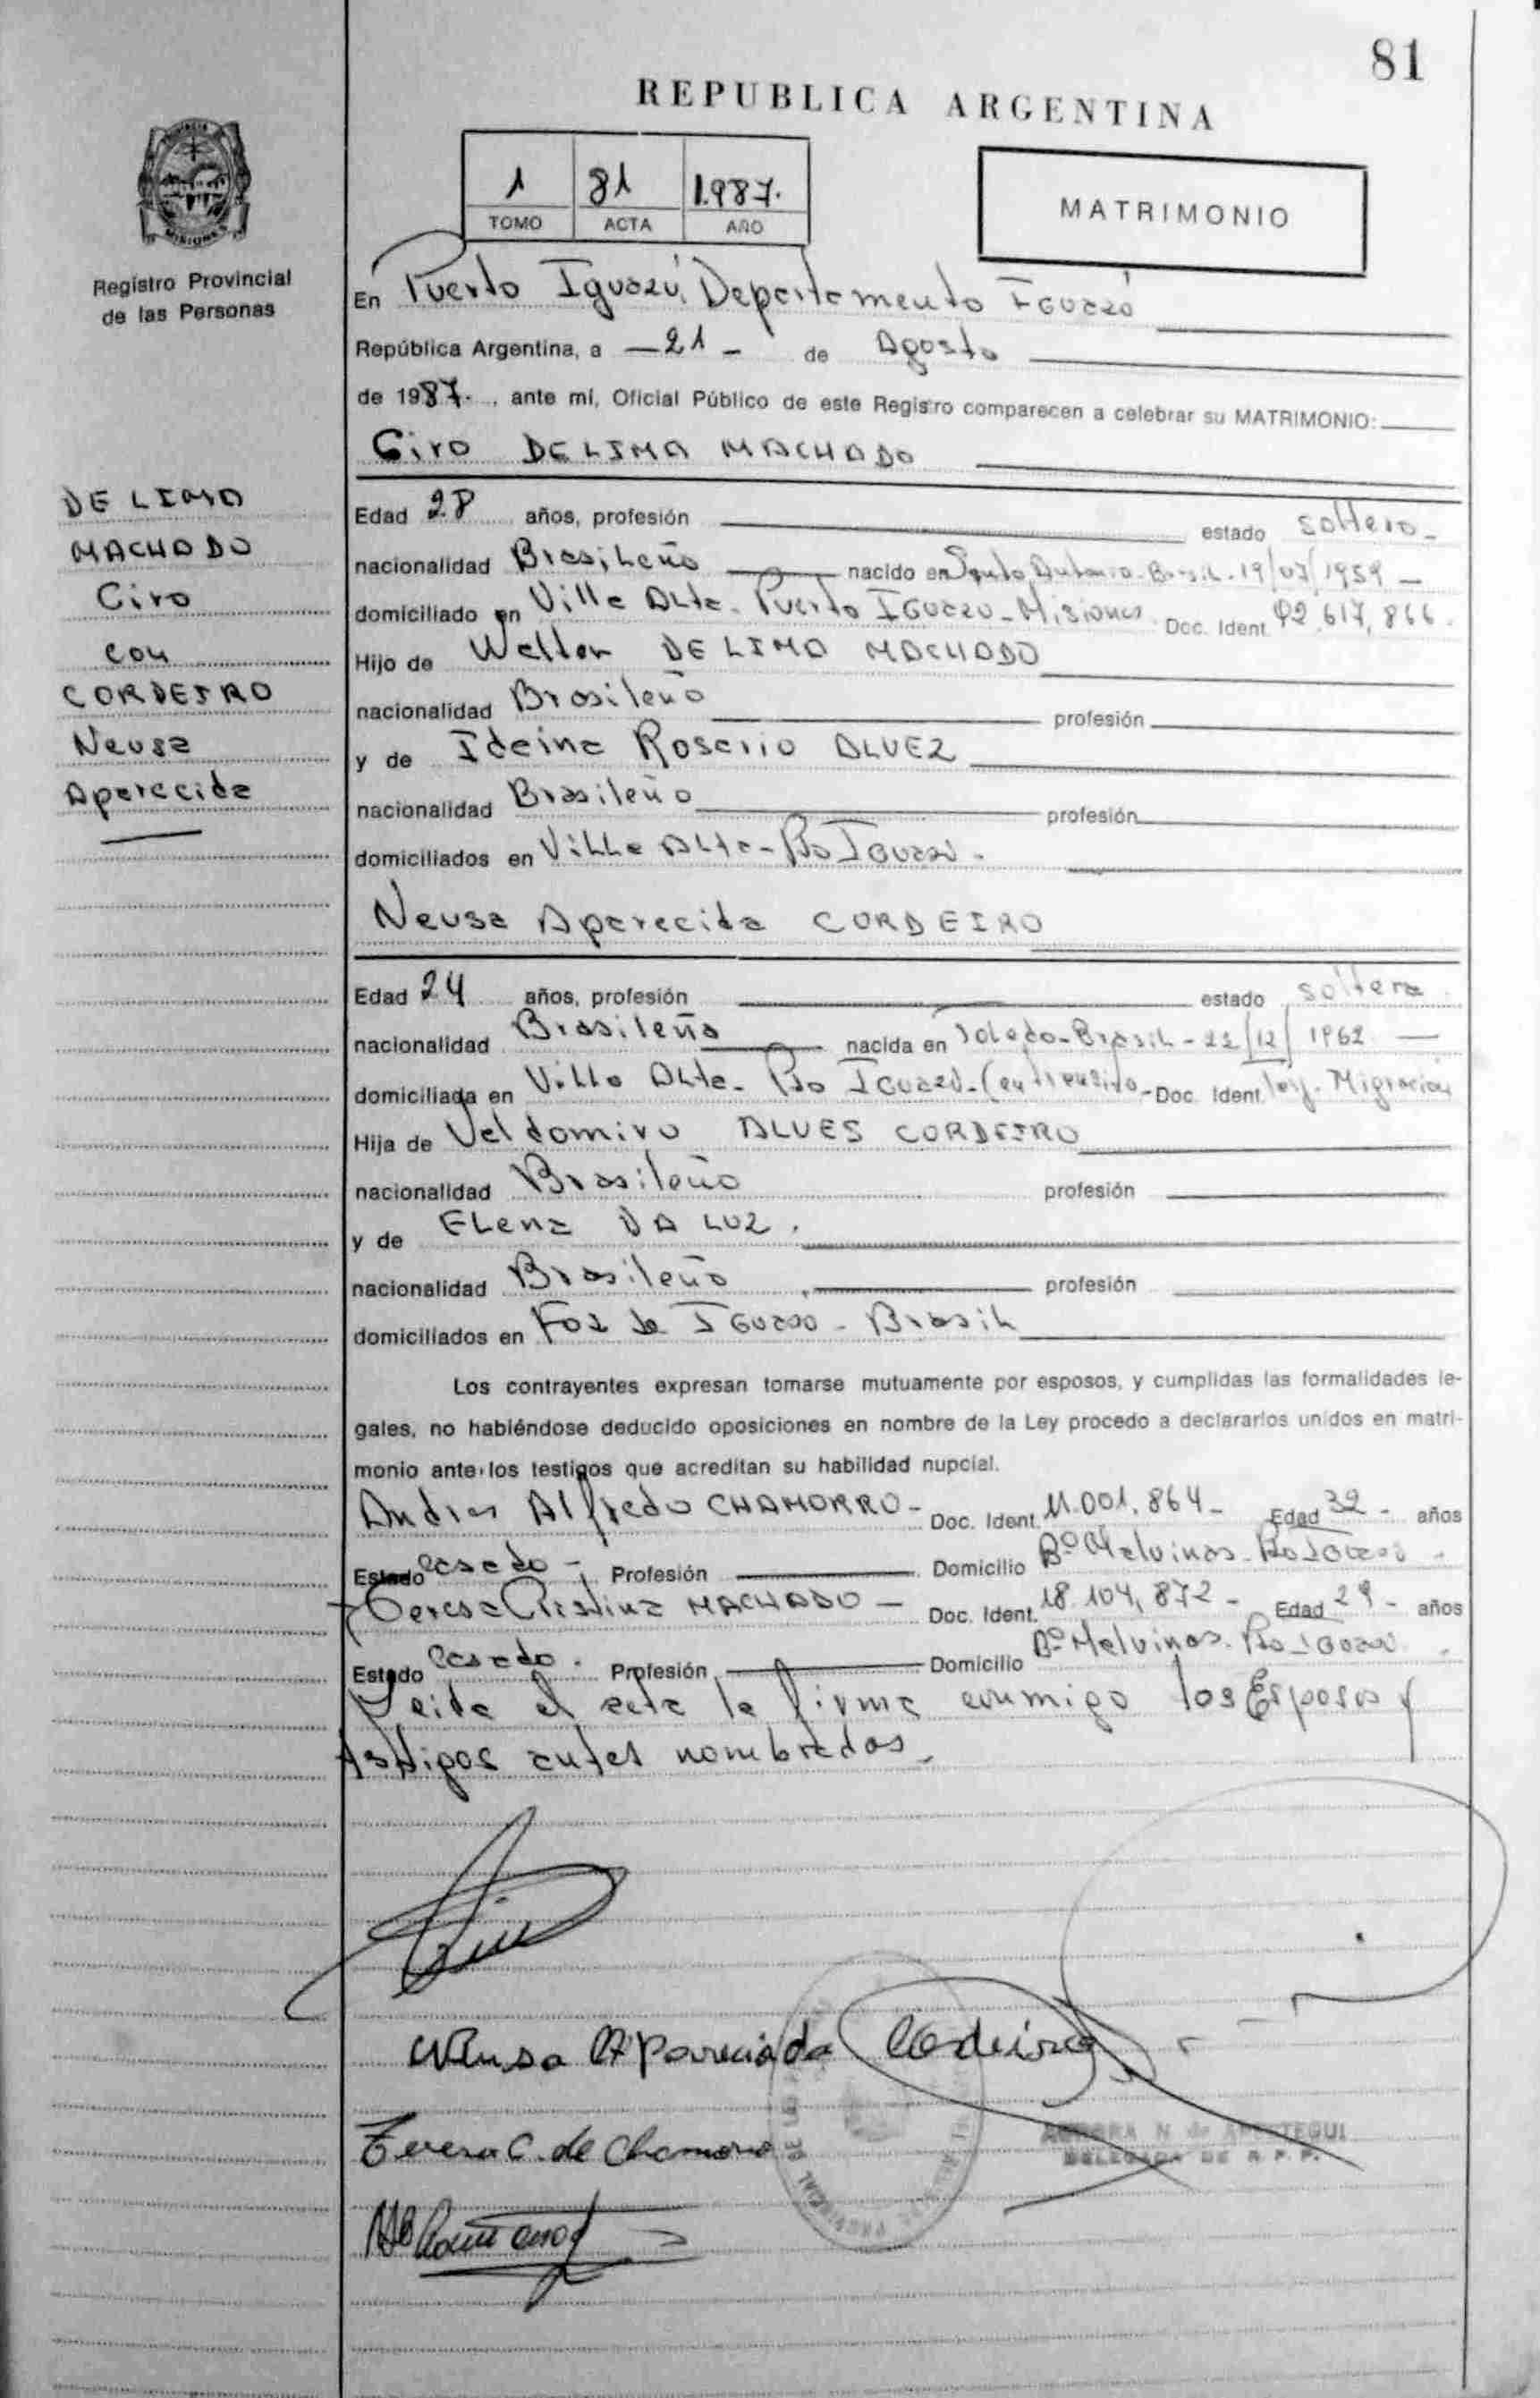 81
REPUBLICA ARGENTINA
1 81 1.987.
TOMO ACTA AÑO
MATRIMONIO
PROVINCIA
MISIONES
Registro Provincial
de las Personas
En Puerto Iguazú, Departamento Iguazú
República Argentina, a — 21 — de Agosto
de 1987. , ante mí, Oficial Público de este Registro comparecen a celebrar su MATRIMONIO:
Ciro DE LIMA MACHADO
DE LIMA
MACHADO
Ciro
con
CORDEIRO
Neusa
Aparecida
Edad 28 años, profesión estado soltero -
nacionalidad Brasileño nacido en Santo Antonio - Brasil - 19/07/1959 —
domiciliado en Villa Alta - Puerto Iguazú - Misiones Doc. Ident. 92.617.866.
Hijo de Walter DE LIMA MACHADO
nacionalidad Brasileño profesión
y de Idaina Rosario ALVEZ
nacionalidad Brasileño profesión
domiciliados en Villa Alta - Pto Iguazú -
Neusa Aparecida CORDEIRO
Edad 24 años, profesión estado soltera
nacionalidad Brasileña nacida en Toledo - Brasil - 22/12/1962 —
domiciliada en Villa Alta - Pto Iguazú - Doc. Ident. Migración
Hija de Valdomiro ALVES CORDEIRO
nacionalidad Brasileño profesión
y de Elena DA LUZ.
nacionalidad Brasileño profesión
domiciliados en Foz de Iguazú - Brasil
Los contrayentes expresan tomarse mutuamente por esposos, y cumplidas las formalidades le-
gales, no habiéndose deducido oposiciones en nombre de la Ley procedo a declararlos unidos en matri-
monio ante los testigos que acreditan su habilidad nupcial.
Andres Alfredo CHAMORRO - Doc. Ident. 11.001.864 - Edad 32 - años
Estado casado - Profesión Domicilio Bº Malvinas - Pto Iguazú -
Teresa Cristina MACHADO — Doc. Ident. 18.104.872 - Edad 29 - años
Estado casado. Profesión Domicilio Bº Malvinas - Pto Iguazú
Leida el acta la firma conmigo los Esposos y
testigos antes nombrados.
Neusa Apareciada Codeiro
Teresa C. de Chamorro
DELEGADA DE R. P. P.